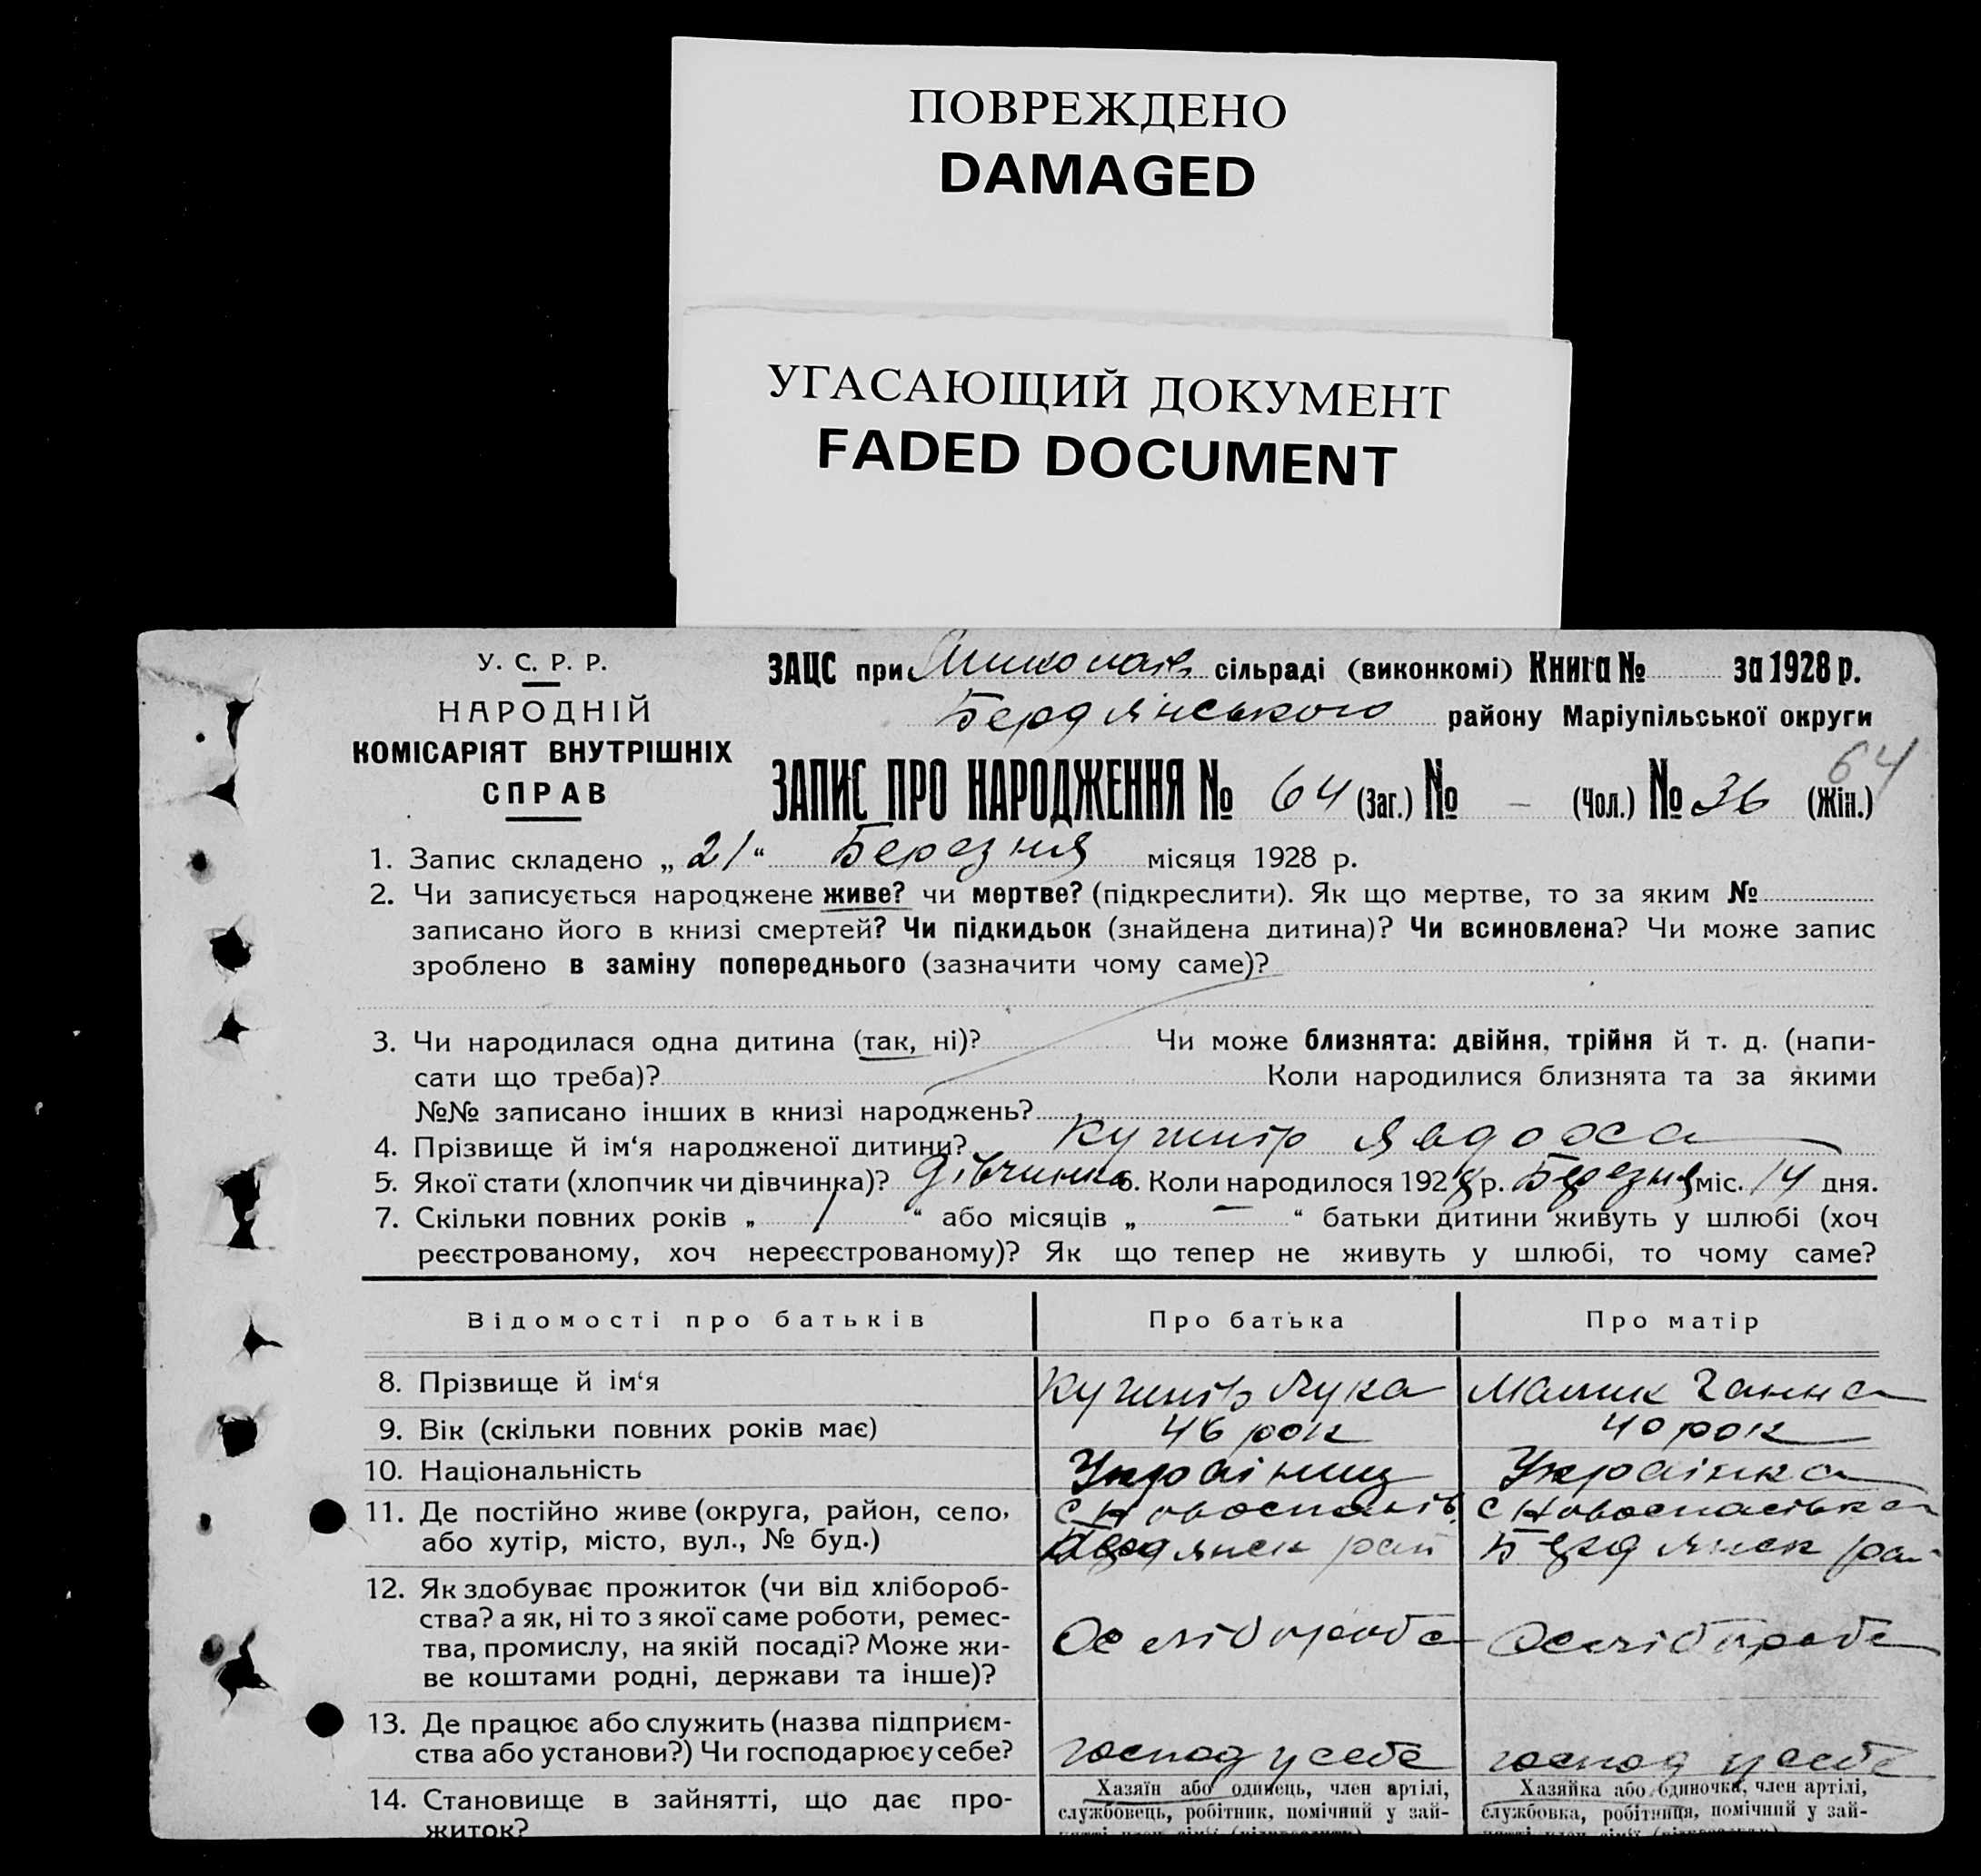 ПОВРЕЖДЕНО
DAMAGED
УГАСАЮЩИЙ ДОКУМЕНТ
FADED DOCUMENT
У. С. Р. Р.
НАРОДНІЙ
КОМІСАРІЯТ ВНУТРІШНІХ
СПРАВ
ЗАЦС при Миколаїв сільраді (виконкомі) Книга № за 1928 р.
Бердянського району Маріупільської округи
64
ЗАПИС ПРО НАРОДЖЕННЯ № 64 (Заг.) № – (Чол.) № 36 (Жін.)
1. Запис складено „ 21 “ Березня місяця 1928 р.
2. Чи записується народжене живе? чи мертве? (підкреслити). Як що мертве, то за яким №
записано його в книзі смертей? Чи підкидьок (знайдена дитина)? Чи всиновлена? Чи може запис
зроблено в заміну попереднього (зазначити чому саме)?
3. Чи народилася одна дитина (так, ні)? Чи може близнята: двійня, трійня й т. д. (напи-
сати що треба)? Коли народилися близнята та за якими
№№ записано інших в книзі народжень?
4. Прізвище й ім‘я народженої дитини? Кушнір
5. Якої стати (хлопчик чи дівчинка)? дівчинка 6. Коли народилося 1928 р. Березня міс. 14 дня.
7. Скільки повних років „ 1 “ або місяців „ — “ батьки дитини живуть у шлюбі (хоч
реєстрованому, хоч нереєстрованому)? Як що тепер не живуть у шлюбі, то чому саме?
Відомості про батьків Про батька Про матір
8. Прізвище й ім‘я Кушнір Лука Ганна
9. Вік (скільки повних років має) 46 рок 40 рок
10. Національність Українець Українка
11. Де постійно живе (округа, район, село, с Новоспасівка
або хутір, місто, вул., № буд.) Бердянск рай Бердянск рай
12. Як здобуває прожиток (чи від хлібороб-
ства? а як, ні то з якої саме роботи, ремес-
тва, промислу, на якій посаді? Може жи-
ве коштами родні, держави та інше)?
13. Де працює або служить (назва підприєм-
ства або установи?) Чи господарює у себе? господ у себе господ у себе
14. Становище в зайнятті, що дає про-
житок?
Хазяїн або одинець, член артілі,
службовець, робітник, помічний у зай-
Хазяйка або одиночка, член артілі,
службовка, робітниця, помічний у зай-